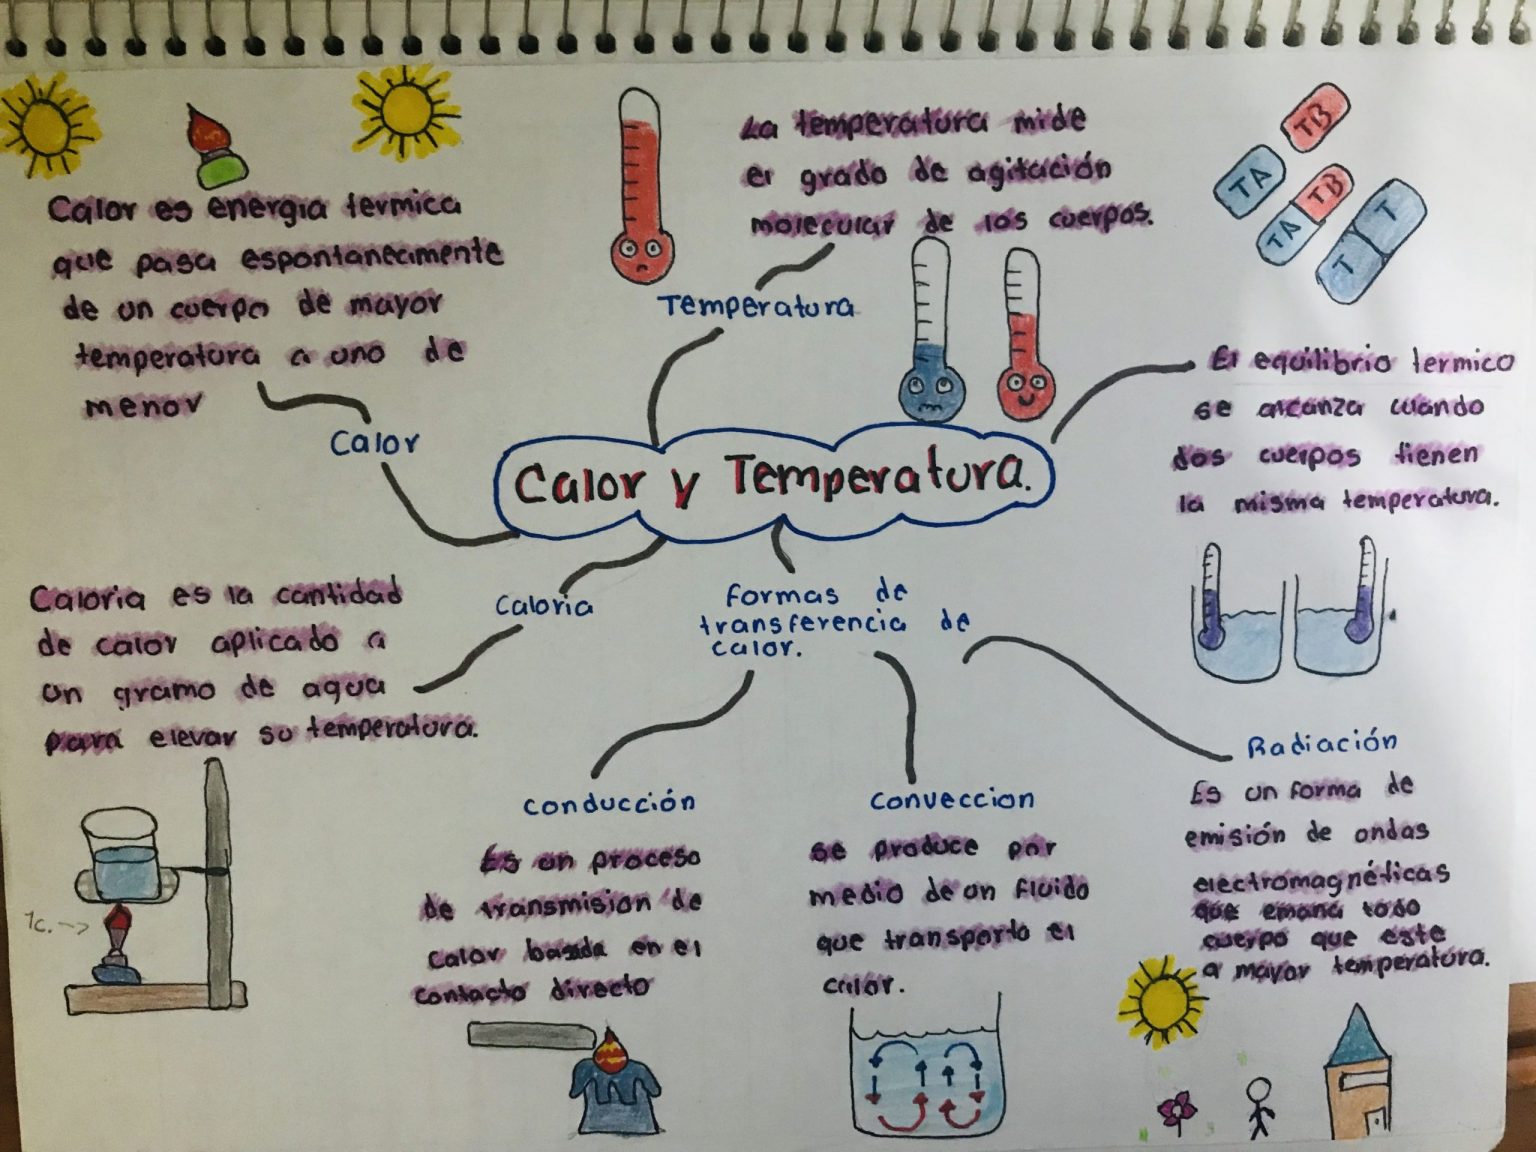 Calor es energia termica
que pasa espontaneamente
de un cuerpo de mayor
temperatura a uno de
menor
Calor
La temperatura mide
el grado de agitación
molecular de los cuerpos.
Temperatura
TB
TA
TA TB
T T
El equilibrio termico
se alcanza cuando
dos cuerpos tienen
la misma temperatura.
Calor y Temperatura.
Caloria es la cantidad
de calor aplicado a
un gramo de agua
para elevar su temperatura.
Caloria
1c.
formas de
transferencia de
calor.
Conducción
Es un proceso
de transmision de
calor basada en el
contacto directo
Conveccion
se produce por
medio de un fluido
que transporta el
calor.
Radiación
Es un forma de
emisión de ondas
electromagnéticas
que emana todo
cuerpo que este
a mayor temperatura.